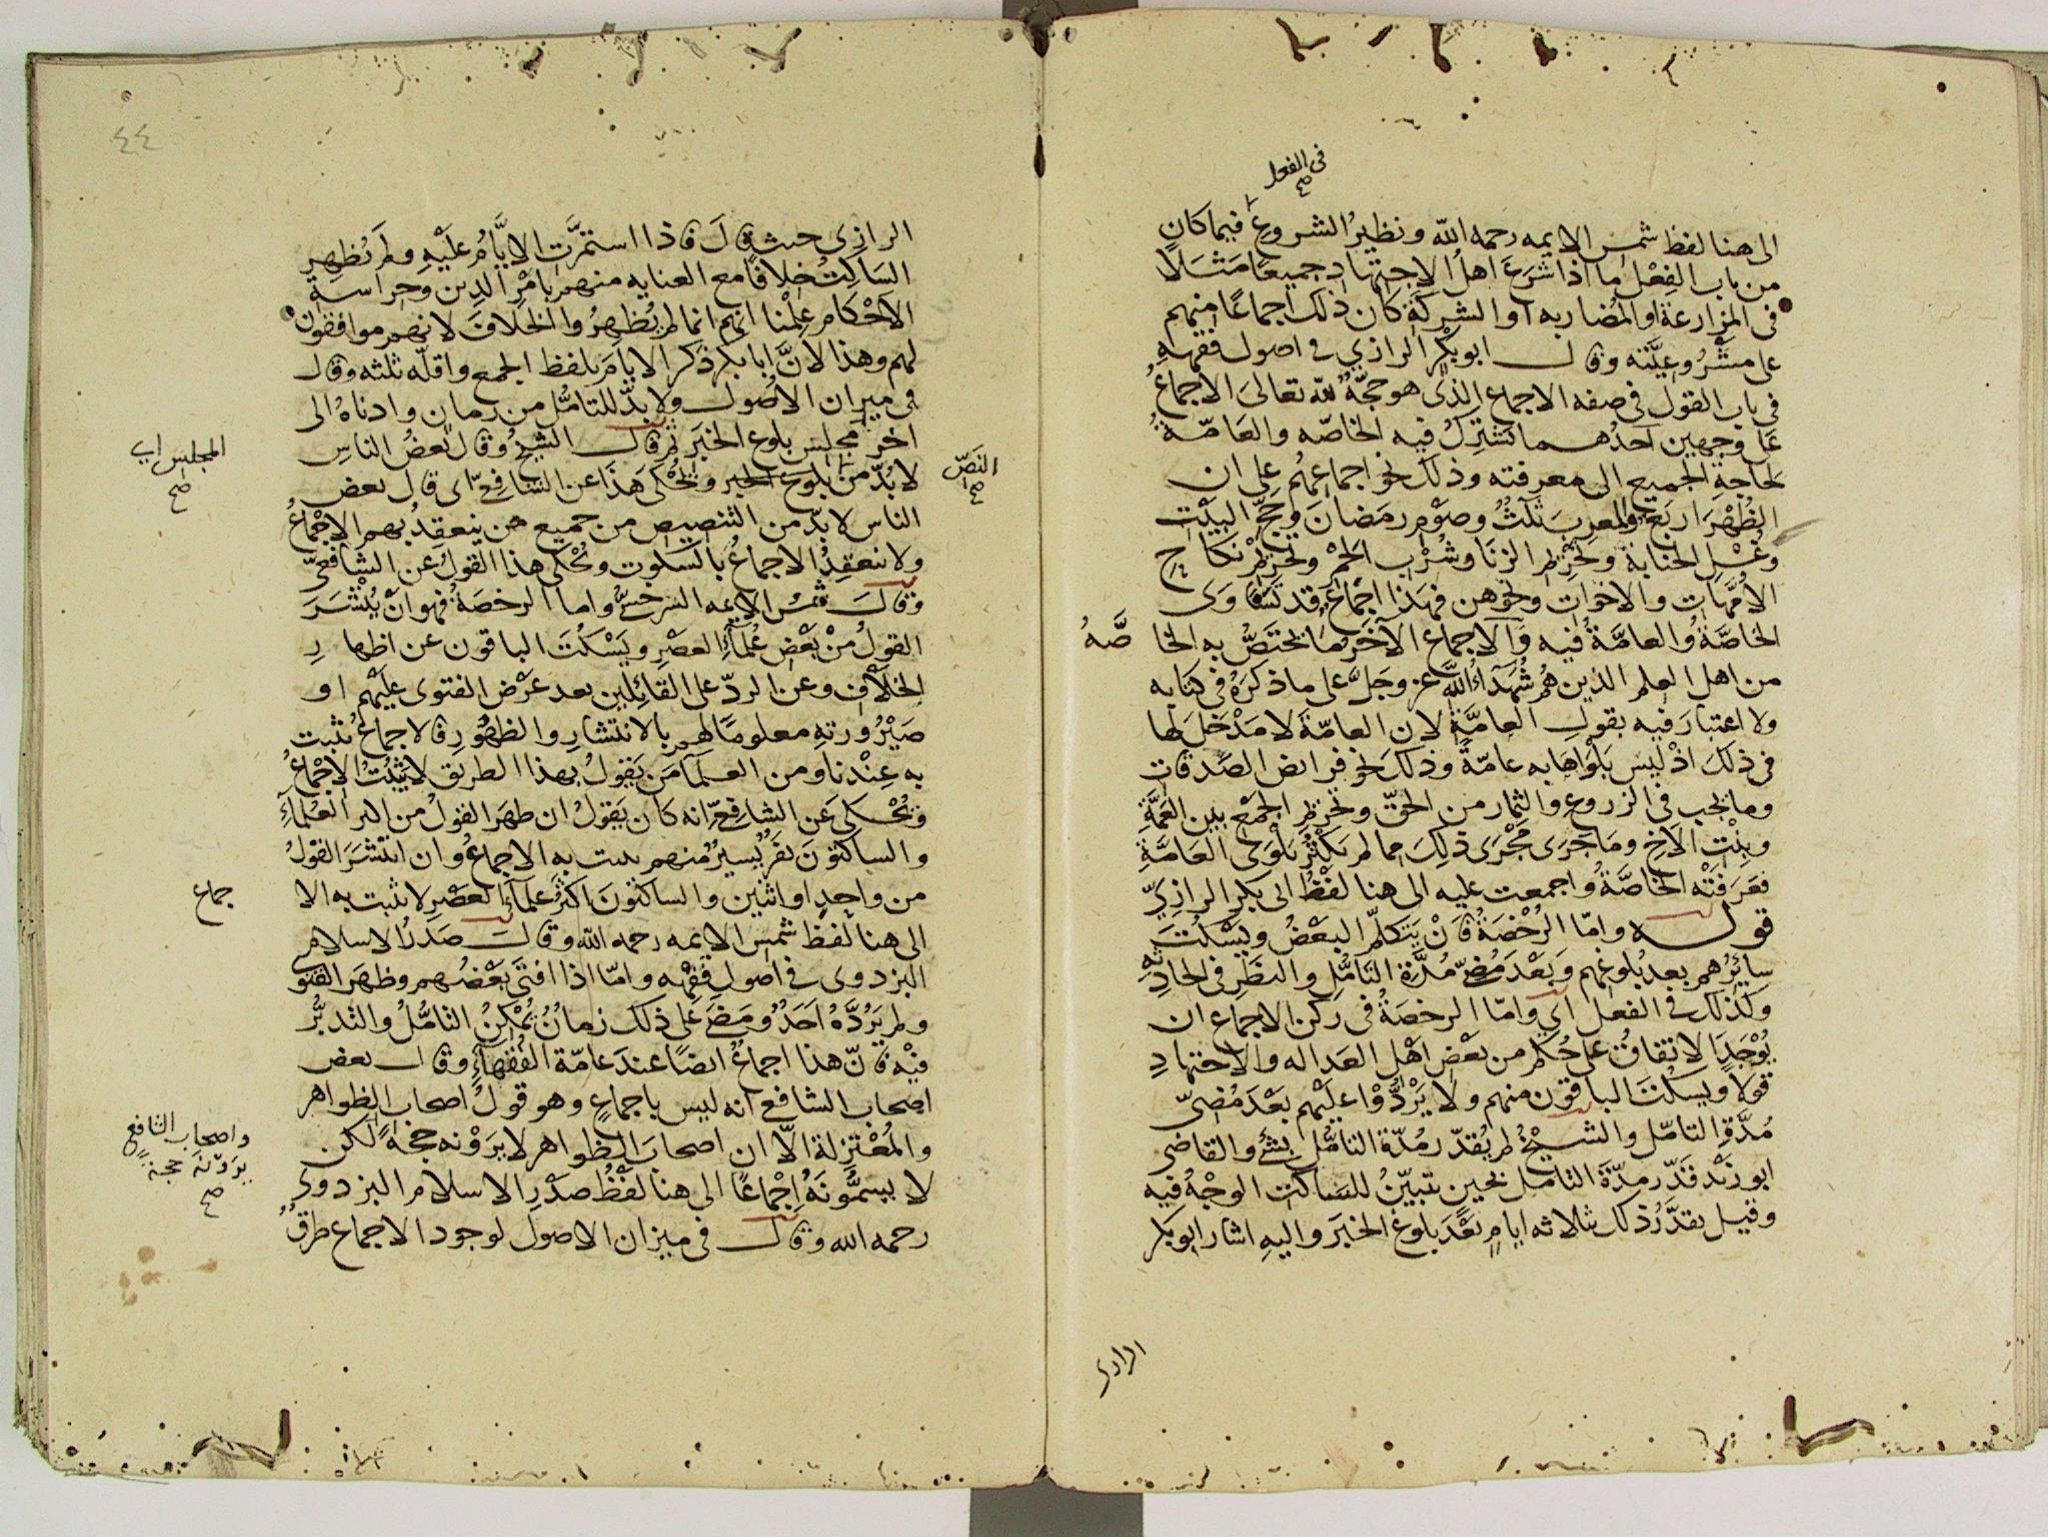 فى الفعل صح
الى هنا لفظ شمس الايمه رحمه الله ونظير الشروع فيما كان
من باب الفعل ما اذا شرع اهل الاجتهاد جميعا مثالا
فى المزارعة او المضاربه او الشركة كان ذلك اجماعا منهم
على مشروعيته وقال ابو بكر الرازي في اصول فقهه
فى باب القول فى صفه الاجماع الذى هو حجة لله تعالى الاجماع
على وجهين احدهما تشترك فيه الخاصه والعامة
لحاجة الجميع الى معرفته وذلك نحو اجماعهم على ان
الظهر اربع والمغرب ثلث وصوم رمضان وحج البيت
وغسل الجنابة وتحريم الزنا وشرب الخمر وتحريم نكاح
الامهات والاخوات ونحوهن فهذا اجماع قد تساوى
الخاصة والعامة فيه والاجماع الآخر ما يختص به الخا صة
من اهل العلم الذين هم شهداء الله عز وجل على ما ذكره فى كتابه
ولا اعتبار فيه بقول العامة لان العامة لا مدخل لها
فى ذلك اذ ليس بلواها به عامة وذلك نحو فرائض الصدقات
وما يجب فى الزروع والثمار من الحق وتحريم الجمع بين العمة
وبنت الاخ وما جرى مجرى ذلك مما لم يكثر بلوى العامة
فعرفته الخاصة واجمعت عليه الى هنا لفظ ابى بكر الرازي
قوله واما الرخصة فان يتكلم البعض ويسكت
سايرهم بعد بلوغهم وبعد مضى مدة التامل والنظر فى الحادثه
وكذلك فى الفعل اي واما الرخصة فى ركن الاجماع ان
يوجد الاتفاق على حكم من بعض اهل العداله والاجتهاد
قولا ويسكت الباقون منهم ولا يردوا عليهم بعد مضى
مدة التامل والشيخ لم يقدر مدة التامل بشئ والقاضى
ابو زيد قدر مدة التامل بحين تبين للساكت الوجه فيه
وقيل يقدر ذلك بثلاثه ايام بعد بلوغ الخبر واليه اشار ابو بكر
الرازى
٤٤
الرازى حيث قال فاذا استمرت الايام عليه ولم يظهر
الساكت خلافا مع العنايه منهم بامر الدين وحراسة
الاحكام علمنا انهم انما لم يظهروا الخلاف لانهم موافقون
لهم وهذا لان ابا بكر ذكر الايام بلفظ الجمع واقله ثلثه وقال
فى ميزان الاصول ولا بد للتامل من زمان وادناه الى
اخر مجلس بلوغ الخبر ثم قال الشيخ وقال بعض الناس
المجلس اى صح
لا بد من بلوغ الخبر ويحكى هذا عن الشافعى اى قال بعض
النص صح
الناس لا بد من التنصيص من جميع من ينعقد بهم الاجماع
ولا ينعقد الاجماع بالسكوت ويحكى هذا القول عن الشافعى
وقال شمس الايمه السرخسى واما الرخصة فهو ان ينتشر
القول من بعض علماء العصر ويسكت الباقون عن اظهار
الخلاف وعن الرد على القائلين بعد عرض الفتوى عليهم او
صيرورته معلوما لهم بالانتشار والظهور فالاجماع يثبت
به عندنا ومن العلما من يقول بهذا الطريق لا يثبت الاجماع
ويحكى عن الشافعى انه كان يقول ان ظهر القول من اكثر العلماء
والساكتون نفر يسير منهم يثبت به الاجماع وان انتشر القول
من واحد او اثنين والساكتون اكثر علماء العصر لا يثبت به الا جماع
الى هنا لفظ شمس الايمه رحمه الله وقال صدر الاسلام
البزدوى في اصول فقهه واما اذا افتى بعضهم وظهر الفتوى
ولم يرده احد ومضى على ذلك زمان يمكن التامل والتدبر
فيه فان هذا اجماع ايضا عند عامة الفقهاء وقال بعض
اصحاب الشافعى انه ليس باجماع وهو قول اصحاب الظواهر
والمعتزلة الا ان اصحاب الظواهر لا يرونه حجة لكن
واصحاب الشافعى
يرونه حجة صح
لا يسمونه اجماعا الى هنا لفظ صدر الاسلام البزدوى
رحمه الله وقال فى ميزان الاصول لوجود الاجماع طرق